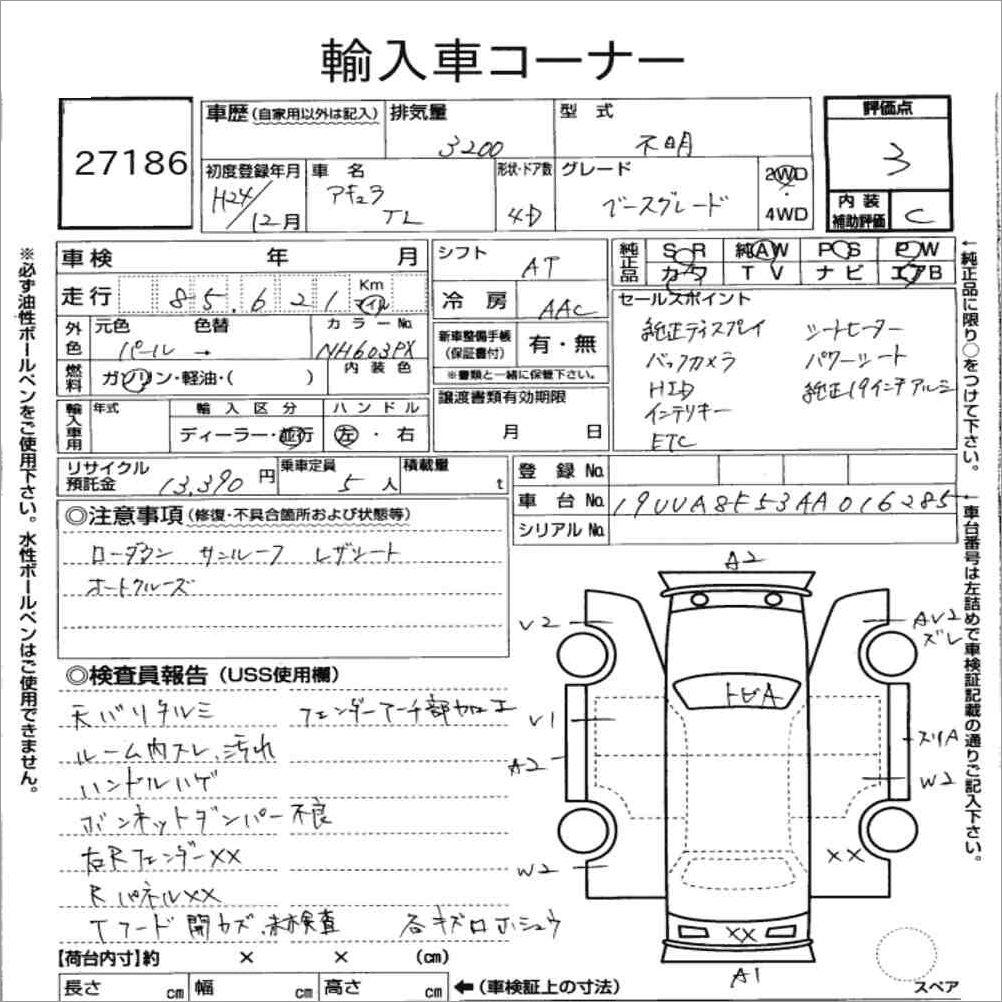 輸入車コーナー
27186
車歴(自家用以外は記入) 排気量 3200 型式 不明 評価点 3
初度登録年月 H24/12月 車名 アキュラ TL 形状・ドア数 4D グレード ベースグレード 2WD・4WD 内装補助評価 C
車検 年 月 シフト AT 純正品 SR 純AW PS PW
カワ TV ナビ エアB
走行 85,621 Km マイル 冷房 AAC セールスポイント
外色 元色 パール → 色替 カラーNo. NH603PX
新車整備手帳(保証書付) 有・無
※書類と一緒に保管下さい。
純正ディスプレイ シートヒーター
バックカメラ パワーシート
HID 純正19インチアルミ
インテリキー
ETC
燃料 ガソリン・軽油・( ) 内装色
譲渡書類有効期限 月 日
輸入車用 年式 輸入区分 ディーラー・並行 ハンドル 左・右
リサイクル預託金 13,390円 乗車定員 5人 積載量 t
登録No.
車台No. 19UUA8F53AA016285
シリアルNo.
◎注意事項(修復・不具合箇所および状態等)
ローダウン サンルーフ レザシート
オートクルーズ
◎検査員報告(USS使用欄)
天バリタルミ フェンダーアーチ部加工
ルーム内スレ、汚れ
ハンドルハゲ
ボンネットダンパー不良
右RフェンダーXX
RパネルXX
Tフード開カズ、未検査 各キズロホシュウ
A2
V2 AV2 ズレ
トビA
V1 スリA
A2 W2
W2 XX
XX
A1
スペア
【荷台内寸】約 × × (cm)
長さ cm 幅 cm 高さ cm ←(車検証上の寸法)
※必ず油性ボールペンをご使用下さい。水性ボールペンはご使用できません。
←純正品に限り○をつけて下さい。
←車台番号は左詰めで車検証記載の通りご記入下さい。